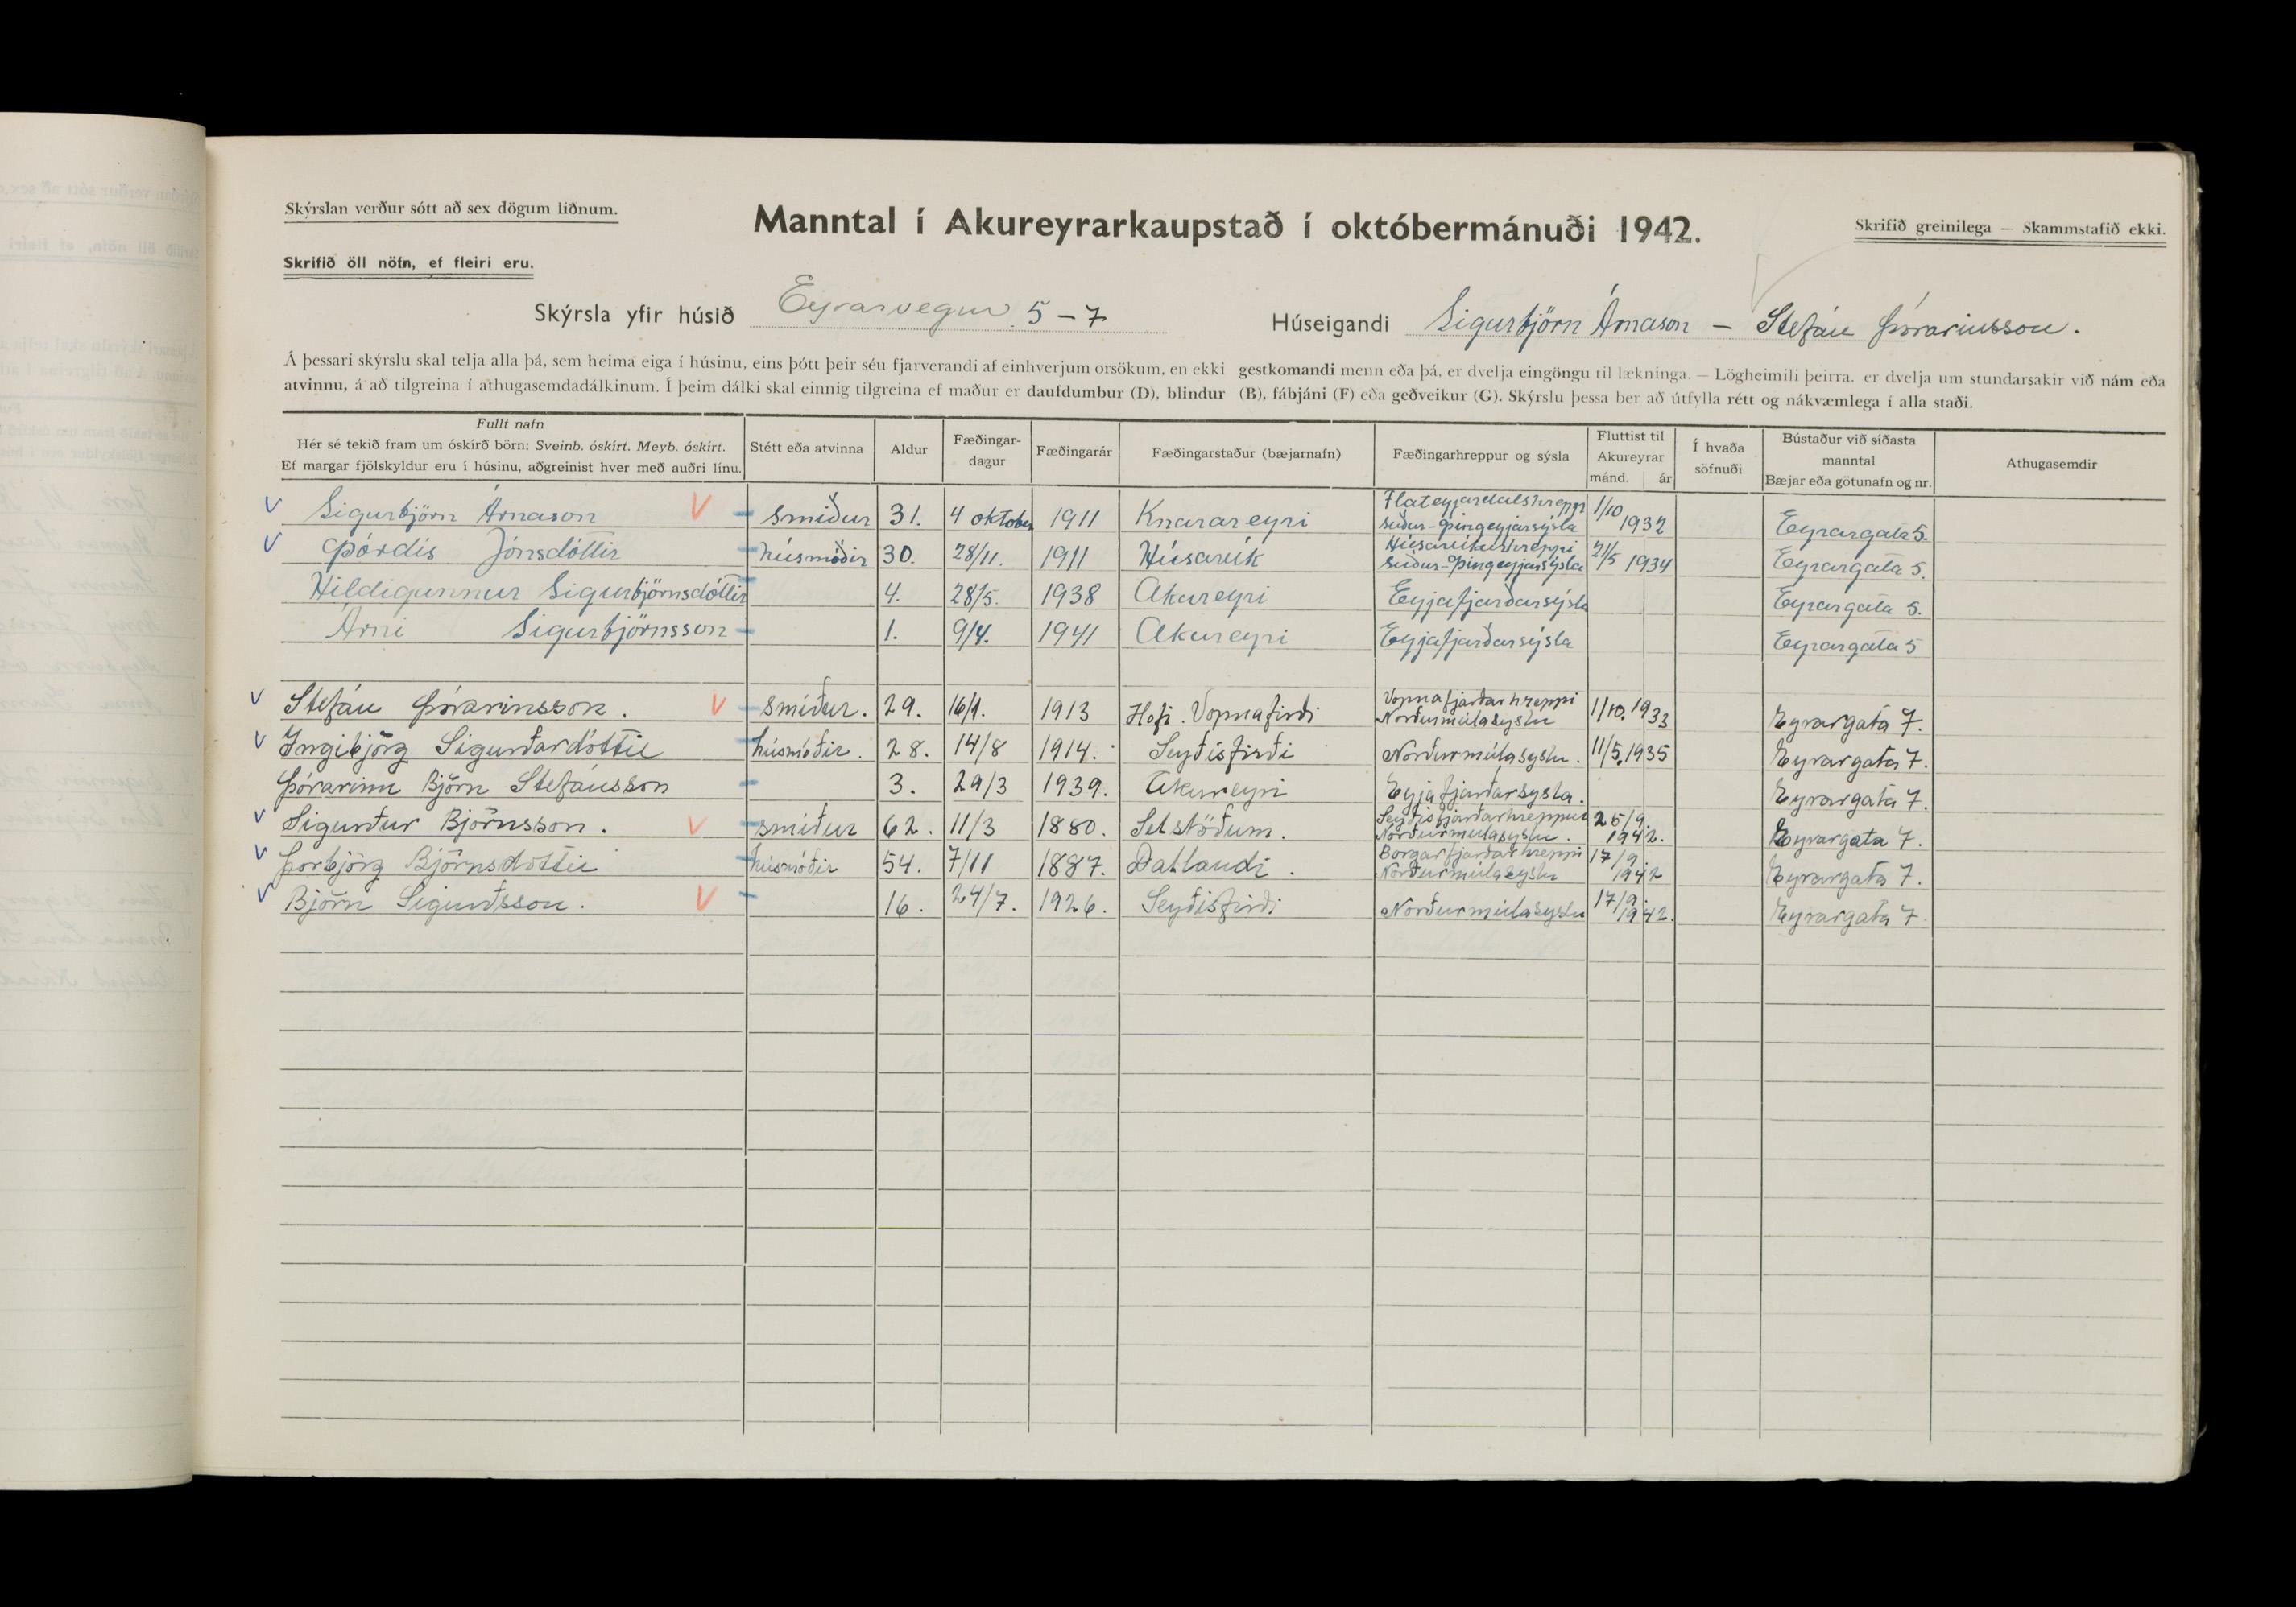 Skýrslan verður sótt að sex dögum liðnum.
Manntal í Akureyrarkaupstað í októbermánuði 1942.
Skrifið greinilega — Skammstafið ekki.
Skrifið öll nöfn, ef fleiri eru.
Skýrsla yfir húsið Eyrarvegur 5-7 Húseigandi Sigurbjörn Árnason - Stefán Þórarinsson.
Á þessari skýrslu skal telja alla þá, sem heima eiga í húsinu, eins þótt þeir séu fjarverandi af einhverjum orsökum, en ekki gestkomandi menn eða þá, er dvelja eingöngu til lækninga. — Lögheimili þeirra, er dvelja um stundarsakir við nám eða
atvinnu, á að tilgreina í athugasemdadálkinum. Í þeim dálki skal einnig tilgreina ef maður er daufdumbur (D), blindur (B), fábjáni (F) eða geðveikur (G). Skýrslu þessa ber að útfylla rétt og nákvæmlega í alla staði.
Fullt nafn
Hér sé tekið fram um óskírð börn: Sveinb. óskírt. Meyb. óskírt.
Ef margar fjölskyldur eru í húsinu, aðgreinist hver með auðri línu.
Stétt eða atvinna
Aldur
Fæðingar-
dagur
Fæðingarár
Fæðingarstaður (bæjarnafn)
Fæðingarhreppur og sýsla
Fluttist til
Akureyrar
mánd. ár
Í hvaða
söfnuði
Bústaður við síðasta
manntal
Bæjar eða götunafn og nr.
Athugasemdir
Sigurbjörn Árnason smiður 31. 4 oktober 1911 Knarareyri Flateyjardalshreppi Suður-Þingeyjarsýsla 1/10 1932 Eyrargata 5.
Þórdís Jónsdóttir húsmóðir 30. 28/11. 1911 Húsavík Húsavíkurhreppi Suður-Þingeyjarsýsla 21/5 1934 Eyrargata 5.
Hildigunnur Sigurbjörnsdóttir 4. 28/5. 1938 Akureyri Eyjafjarðarsýsla Eyrargata 5.
Árni Sigurbjörnsson 1. 9/4. 1941 Akureyri Eyjafjarðarsýsla Eyrargata 5
Stefán Þórarinsson. smiður. 29. 16/9. 1913 Hofi. Vopnafirði Vopnafjarðarhreppi Norðurmúlasyslu 1/10. 1933 Eyrargata 7.
Ingibjörg Sigurðardóttir húsmóðir. 28. 14/8 1914. Seyðisfirði Norðurmúlasyslu. 11/5. 1935 Eyrargata 7.
Þórarinn Björn Stefánsson 3. 29/3 1939. Akureyri Eyjafjarðarsysla. Eyrargata 7.
Sigurður Björnsson. smiður 62. 11/3 1880. Selstöðum. Seyðisfjarðarhreppur Norðurmúlasyslu. 25/9. 1942. Eyrargata 7.
Þorbjörg Björnsdóttir húsmóðir 54. 7/11 1887. Dallandi. Borgarfjarðarhreppi Norðurmúlasyslu 17/9. 1942 Eyrargata 7.
Björn Sigurðsson. 16. 24/7. 1926. Seyðisfirði Norðurmúlasyslu 17/9. 1942. Eyrargata 7.